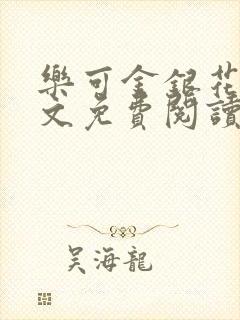 樂可金銀花
文免費閱讀
吴海龍